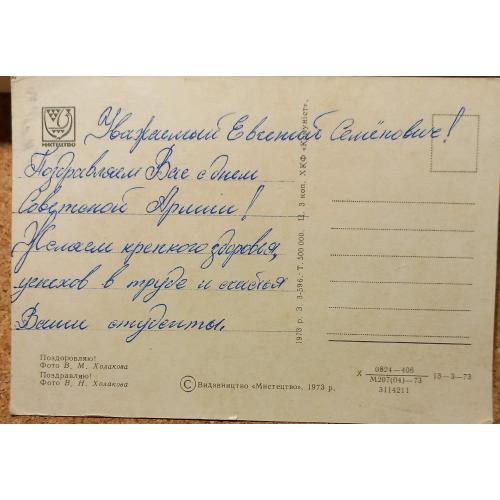 МИСТЕЦТВО
Уважаемый Евгений Семёнович!
Поздравляем Вас с днем
Советской Армии!
Желаем крепкого здоровья,
успехов в труде и счастья
Ваши студенты.
Поздоровляю!
Фото В. М. Холакова
Поздравляю!
Фото В. Н. Холакова
© Видавництво «Мистецтво», 1973 р.
1973 р. З. 3-596. Т. 500 000. Ц. 3 коп. ХКФ «Комуніст».
X 0824—406 13—3—73
М207(04)—73
3114211